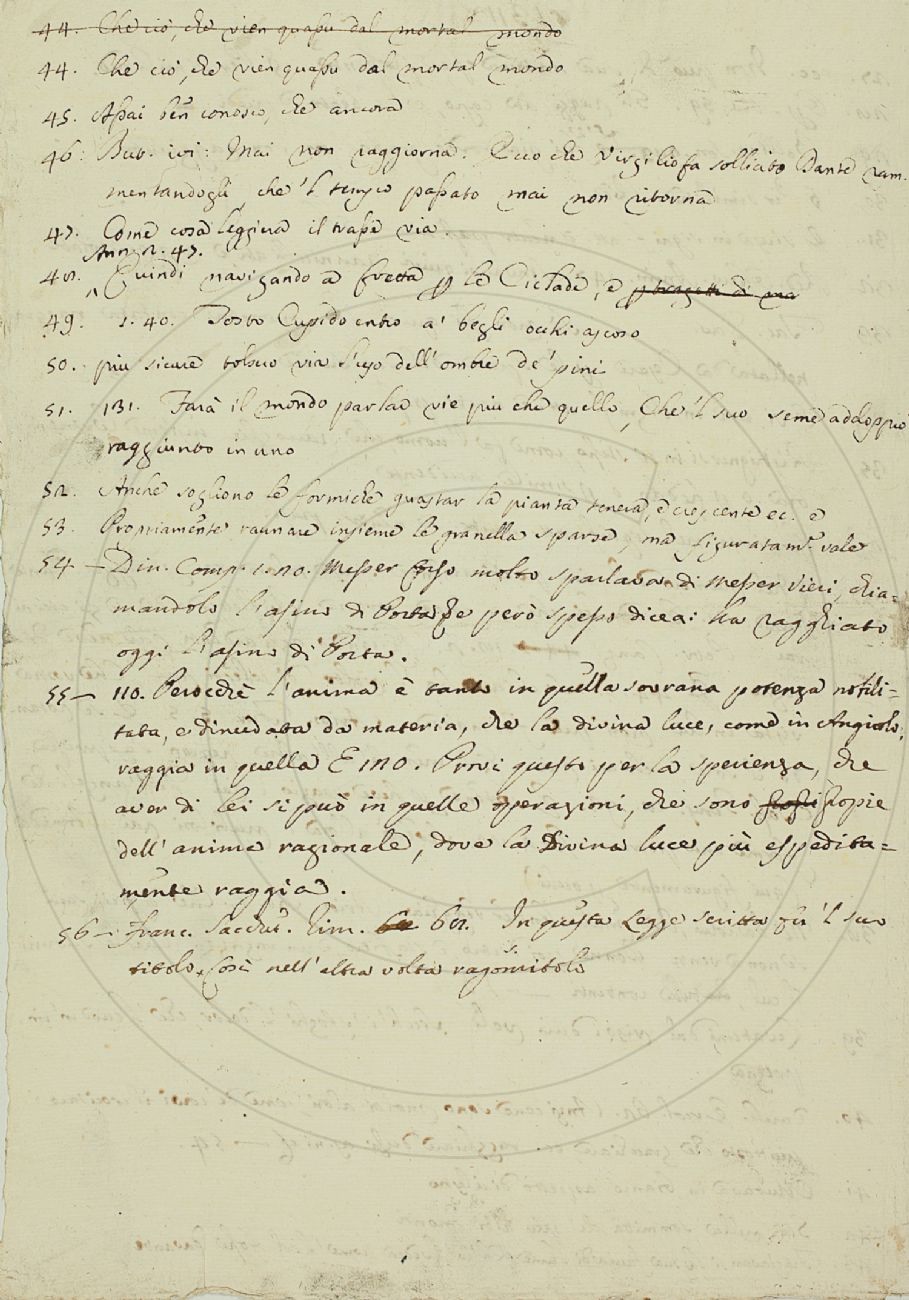 44. Che ciò, che vien quassu dal mortal mondo
44. Che ciò, che vien quassu dal mortal mondo
45. Assai ben conosco, che ancora
46. But. ivi: Mai non raggiorna. Ecco che Virgilio fa sollicito Dante ram-
mentandogli, che 'l tempo passato mai non ritorna
47. Come cosa leggiera il trasse via.
Ann. 2. 47.
48. Quindi navigando a fretta p le Cicladi, e
49. 1. 40. Tosto Cupido entro a' begli occhi ascoso
50. più sicure tolsero via l'uso dell'ombre de' pini
51. 131. Farà il mondo parlar vie più che quello, Che 'l suo seme addoppiò
raggiunto in uno
52. Anche sogliono le formiche guastar la pianta tenera, e crescente ec. e
53. Propriamente raunare insieme le granella sparse, ma figuratam. vale
54 - Din. Comp. 1. 20. Messer Corso molto sparlava di Messer Vieri, chia=
mandolo l'asino di Porta, e però spesso dicea: ha ragghiato
oggi l'asino di Porta.
55 - 110. Perocchè l'anima è tanto in quella sovrana potenza nobili=
tata, e dinudata da materia, che la divina luce, come in Angiolo,
raggia in quella E 120. Provi questo per la sperienza, che
aver di lei si può in quelle operazioni, che sono
dell'anima razionale, dove la Divina luce più espedita=
mente raggia.
56 - Franc. Sacch. Rim. 62. In questa Legge scritta fu 'l suo
titolo, Così nell'altra volta ragomitolo